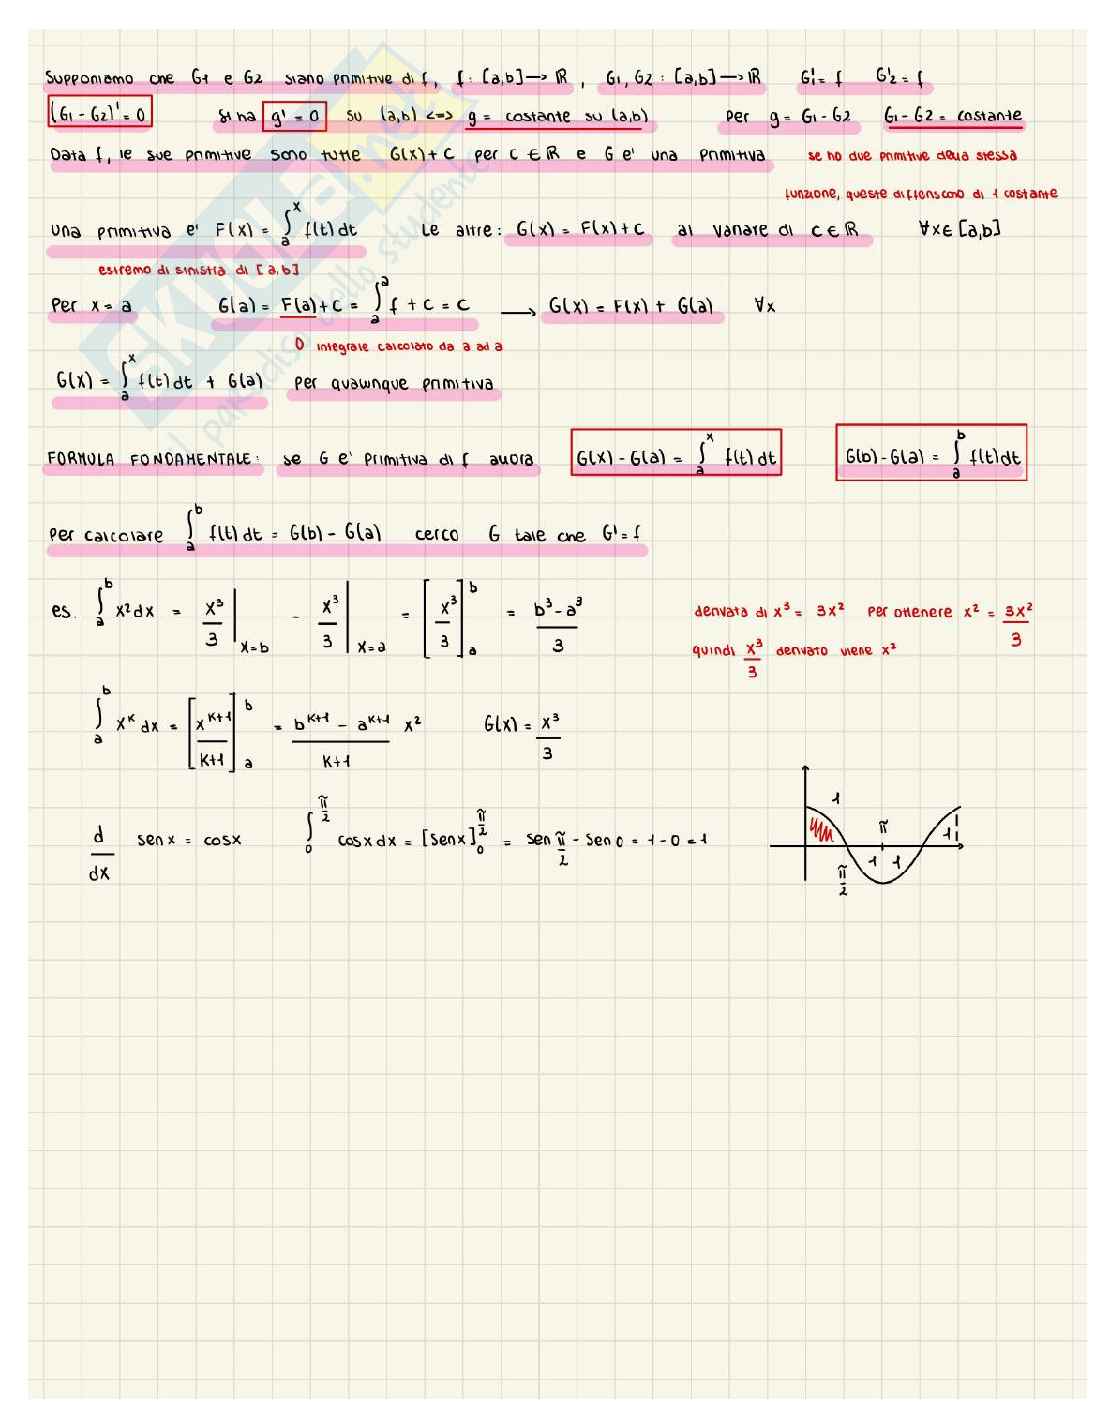 Supponiamo che G1 e G2 siano primitive di f, f: [a,b] → ℝ, G1, G2: [a,b] → ℝ G1' = f G2' = f
(G1 - G2)' = 0 si ha g' = 0 su (a,b) <=> g = costante su (a,b) per g = G1 - G2 G1 - G2 = costante
Data f, le sue primitive sono tutte G(x) + C per C ∈ ℝ e G e' una primitiva se ho due primitive della stessa
funzione, queste differiscono di 1 costante
una primitiva e' F(x) = ∫_a^x f(t)dt Le altre: G(x) = F(x) + C al variare di C ∈ ℝ ∀x ∈ [a,b]
estremo di sinistra di [a,b]
Per x = a G(a) = F(a) + C = ∫_a^a f + C = C → G(x) = F(x) + G(a) ∀x
0 integrale calcolato da a ad a
G(x) = ∫_a^x f(t)dt + G(a) per qualunque primitiva
FORMULA FONDAMENTALE: se G e' primitiva di f allora G(x) - G(a) = ∫_a^x f(t)dt G(b) - G(a) = ∫_a^b f(t)dt
per calcolare ∫_a^b f(t)dt = G(b) - G(a) cerco G tale che G' = f
es. ∫_a^b x² dx = x³/3 |_{x=b} - x³/3 |_{x=a} = [x³/3]_a^b = (b³ - a³)/3 derivata di x³ = 3x² per ottenere x² = 3x²/3
quindi x³/3 derivato viene x²
∫_a^b x^k dx = [x^{k+1}/(k+1)]_a^b = (b^{k+1} - a^{k+1})/(k+1) x² G(x) = x³/3
d/dx sen x = cos x ∫_0^{π/2} cos x dx = [sen x]_0^{π/2} = sen π/2 - sen 0 = 1 - 0 = 1
1 π 1
π/2 1 1
SKUOLA.net
il paradiso dello studente